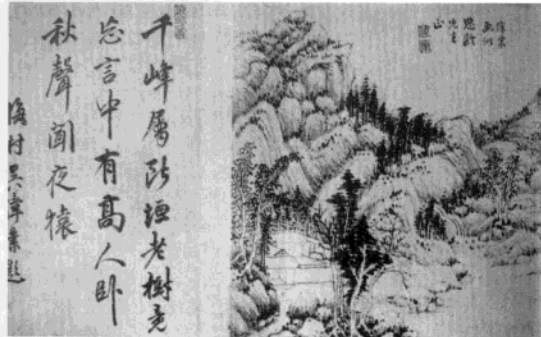 千峰屬断垣老樹竟
忘言中有高人卧
秋聲聞夜猿
梅村吴偉業題